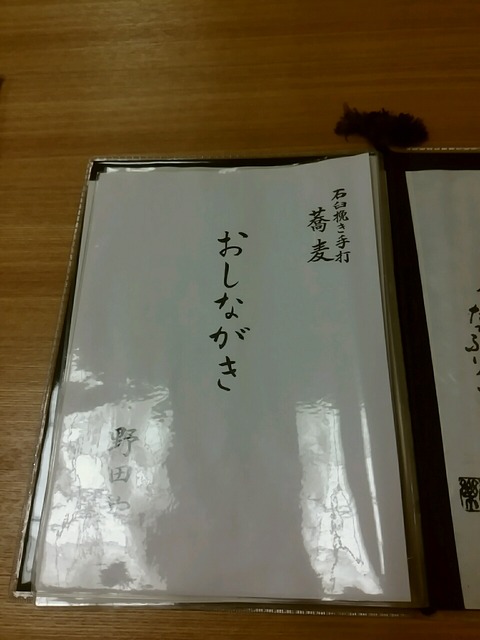 石臼挽き手打
蕎麦
おしながき
野田や